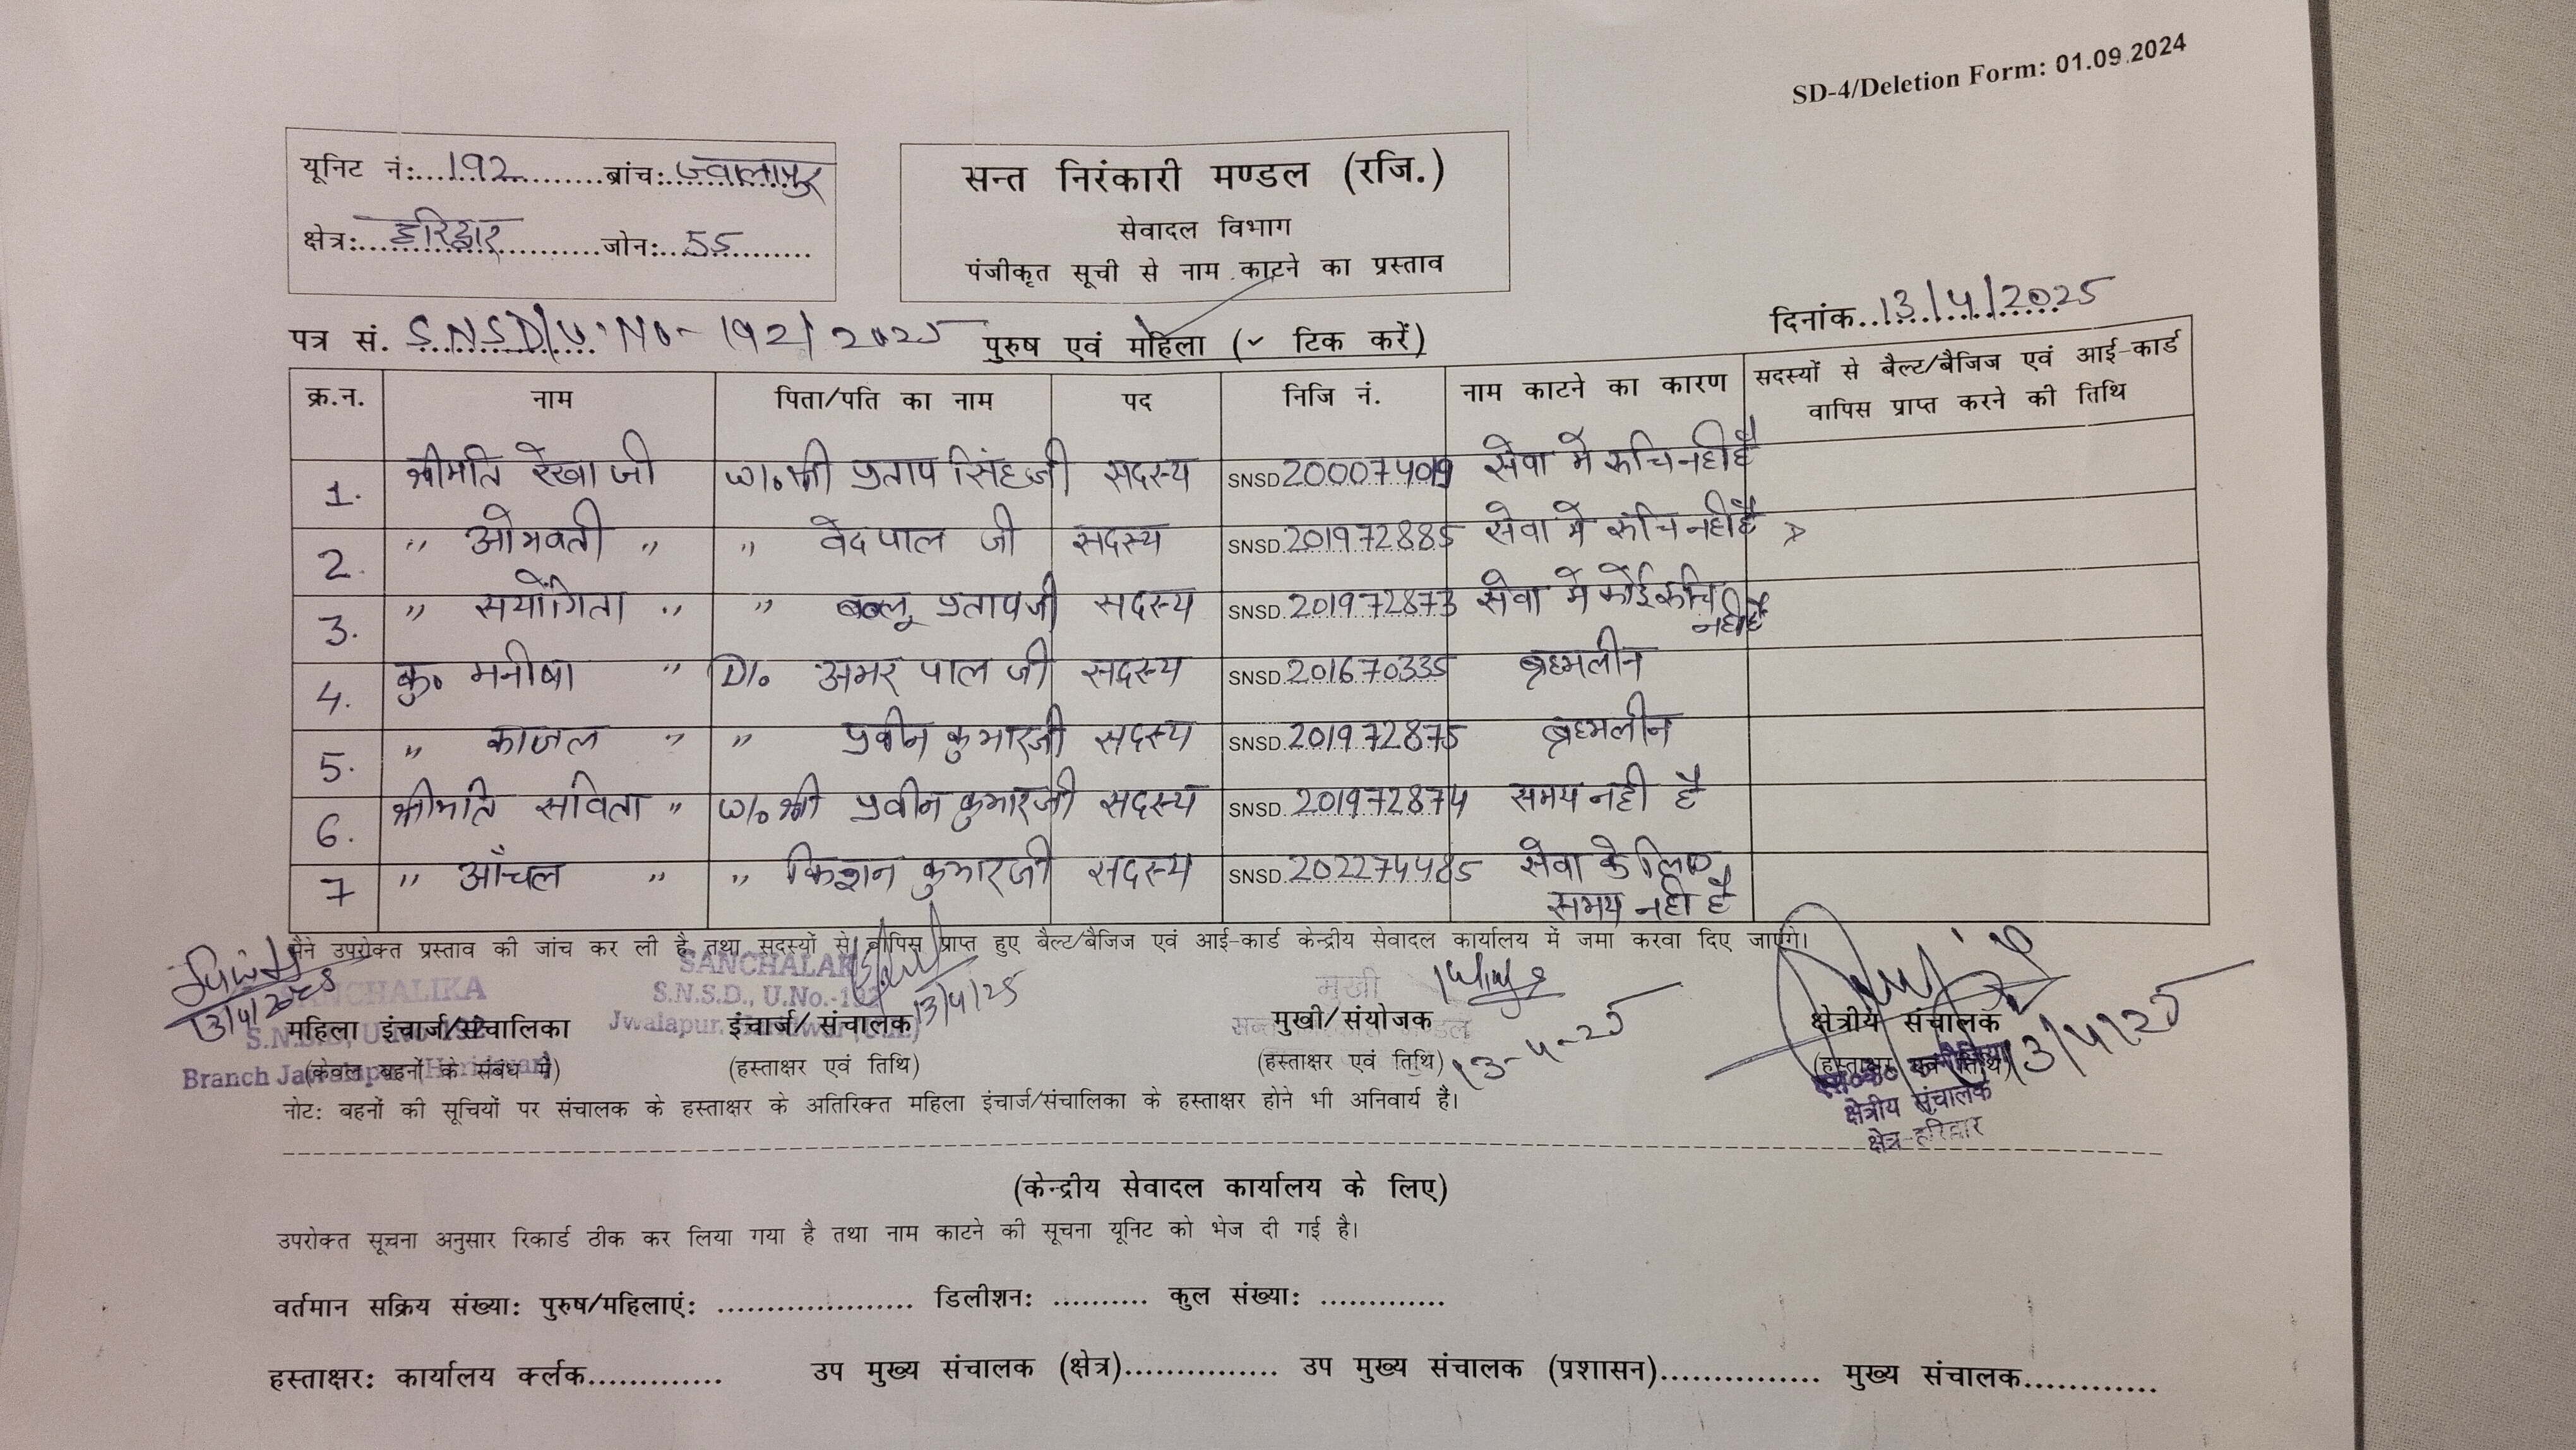 SD-4/Deletion Form: 01.09.2024
यूनिट नं:...192...ब्रांच:...ज्वालापुर
क्षेत्र:...हरिद्वार...जोन:...55...
सन्त निरंकारी मण्डल (रजि.)
सेवादल विभाग
पंजीकृत सूची से नाम काटने का प्रस्ताव
दिनांक..13/4/2025
पत्र सं. S.N.S.D/U.No-192/2025 पुरुष एवं महिला (✓ टिक करें)
क्र.न. नाम पिता/पति का नाम पद निजि नं. नाम काटने का कारण सदस्यों से बैल्ट/बैजिज एवं आई-कार्ड वापिस प्राप्त करने की तिथि
1. श्रीमति रेखा जी W/o श्री प्रताप सिंह जी सदस्य SNSD 200074019 सेवा मे रुचि नही है
2. " ओमवती " " वेदपाल जी सदस्य SNSD 201972885 सेवा मे रुचि नही है
3. " सयोंगिता " " बब्लू प्रतापजी सदस्य SNSD 201972873 सेवा मे कोई रुचि नही है
4. कु० मनीषा " D/o अमर पाल जी सदस्य SNSD 201670335 ब्रह्मलीन
5. " काजल " " प्रवीन कुमारजी सदस्य SNSD 201972875 ब्रह्मलीन
6. श्रीमति सविता " W/o श्री प्रवीन कुमारजी सदस्य SNSD 201972874 समय नही है
7 " आँचल " " किशन कुमारजी सदस्य SNSD 202274485 सेवा के लिए समय नही है
मैने उपरोक्त प्रस्ताव की जांच कर ली है तथा सदस्यों से वापिस प्राप्त हुए बैल्ट/बैजिज एवं आई-कार्ड केन्द्रीय सेवादल कार्यालय में जमा करवा दिए जाएंगे।
SANCHALIKA SANCHALAK मुखी
13/4/2025 S.N.S.D., U.No.-192 13/4/25
महिला इंचार्ज/संचालिका इंचार्ज/ संचालक मुखी/ संयोजक क्षेत्रीय संचालक
(केवल बहनों के संबंध मै) (हस्ताक्षर एवं तिथि) (हस्ताक्षर एवं तिथि) 13-4-25 (हस्ताक्षर एवं तिथि) 13/4/25
क्षेत्रीय संचालक
क्षेत्र-हरिद्वार
नोट: बहनों की सूचियों पर संचालक के हस्ताक्षर के अतिरिक्त महिला इंचार्ज/संचालिका के हस्ताक्षर होने भी अनिवार्य हैं।
(केन्द्रीय सेवादल कार्यालय के लिए)
उपरोक्त सूचना अनुसार रिकार्ड ठीक कर लिया गया है तथा नाम काटने की सूचना यूनिट को भेज दी गई है।
वर्तमान सक्रिय संख्या: पुरुष/महिलाएं: .................... डिलीशन: .......... कुल संख्या: .............
हस्ताक्षर: कार्यालय क्लर्क............. उप मुख्य संचालक (क्षेत्र)............... उप मुख्य संचालक (प्रशासन)............... मुख्य संचालक............